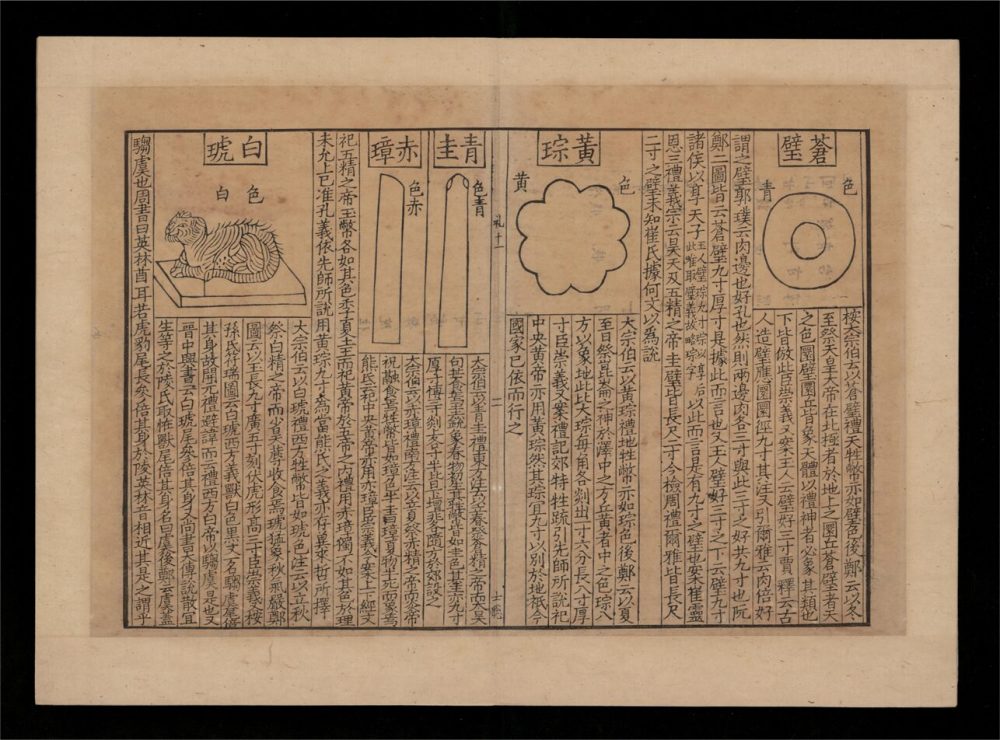 蒼璧
色
青
按大宗伯云以蒼璧禮天牲幣亦如璧色後鄭云以冬
至祭天皇大帝在北極者於地上之圜丘蒼璧者天
之色圜璧圜丘皆象天體以禮神者必象其類也
下皆倣此臣崇義又案玉人云璧好三寸賈釋云古
人造璧應圜圜徑九寸其注又引爾雅云肉倍好
謂之璧郭璞云肉邊也好孔也然則兩邊肉各三寸與此三寸之好共九寸也阮
鄭二圖皆云蒼璧九寸厚寸是據此而言也又玉人璧好三寸之下云璧九寸
諸侯以享天子玉人璧琮九寸琮以享后此唯取璧義故略琮字以此而言是有九寸之璧也案崔靈
恩三禮義宗云昊天及五精之帝圭璧皆長尺二寸今檢周禮爾雅皆長尺
二寸之璧未知崔氏據何文以為說
黃琮
色
黃
大宗伯云以黃琮禮地牲幣亦如琮色後鄭云以夏
至日祭崐崙之神於澤中之方丘黃者中之色琮八
方以象地此比大琮每角各剡出一寸六分長八寸厚
寸臣崇義又案禮記郊特牲疏引先師所說祀
中央黃帝亦用黃琮然其琮宜九寸以別於地祇今
國家已依而行之
礼十一
二
青圭
色青
大宗伯云以青圭禮東方注云以立春祭蒼精之帝而太昊
句芒食焉圭銳象春物初生其牲幣皆如圭色其圭亦九寸
厚寸博三寸剡上各寸半皆壇於各隨方於郊設之
赤璋
色赤
大宗伯云以赤璋禮南方注云以立夏祭赤精之帝而炎帝
祝融食焉牲幣皆如璋色半圭曰璋夏物半死而象焉
熊氏云祀中央黃帝亦用赤璋臣崇義又案上下經文
祀五精之帝玉幣各如其色季夏土王而祀黃帝於五帝之內禮用赤璋獨不如其色於理
未允上已准孔義依先師所說用黃琮九寸為當熊氏之義亦存冀來哲所擇
白琥
色
白
大宗伯云以白琥禮西方牲幣皆如琥色注云以立秋
祭白精之帝而少昊蓐收食焉琥猛象秋氣嚴鄭
圖云以玉長九寸廣五寸刻伏虎形高三寸臣崇義又按
孫氏符瑞圖云白琥西方義獸白色黑文一名騶虞尾倍
其身故開元禮避諱而云禮西方白帝以騶虞是也又
晉中興書云白琥尾參倍其身又尚書大傳說散宜
生等之於陵氏取怪獸尾倍其身名曰虞後鄭云虞蓋
騶虞也周書曰英林酋耳若虎豹尾長參倍其身於陵英林音相近其是之謂乎